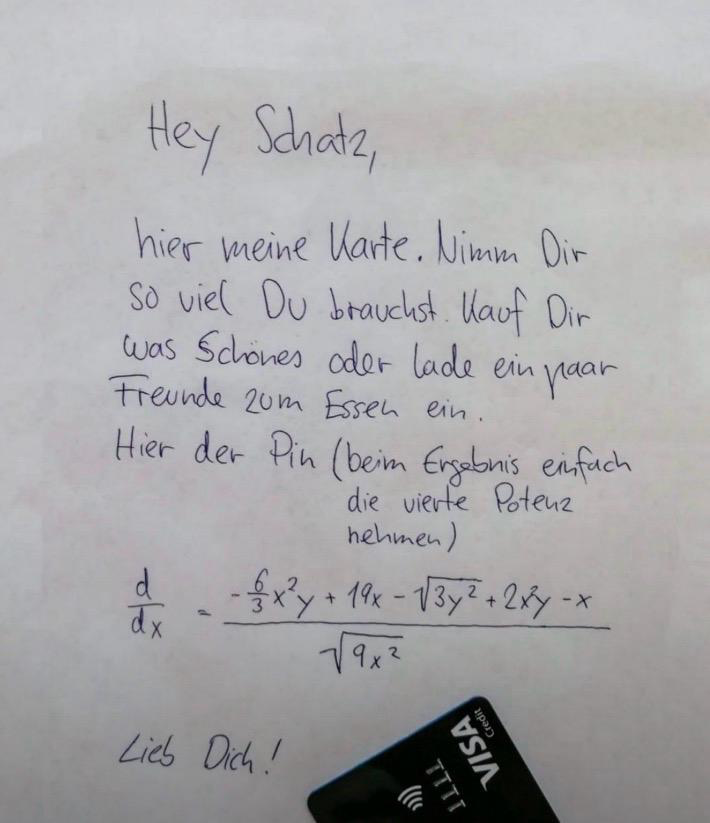 Hey Schatz,
hier meine Karte. Nimm Dir
so viel Du brauchst. Kauf Dir
was Schönes oder lade ein paar
Freunde zum Essen ein.
Hier der Pin (beim Ergebnis einfach
die vierte Potenz
nehmen)
d/dx = (-6/3x²y + 19x - √(3y²) + 2x²y - x) / √(9x²)
Lieb Dich!
VISA
Credit